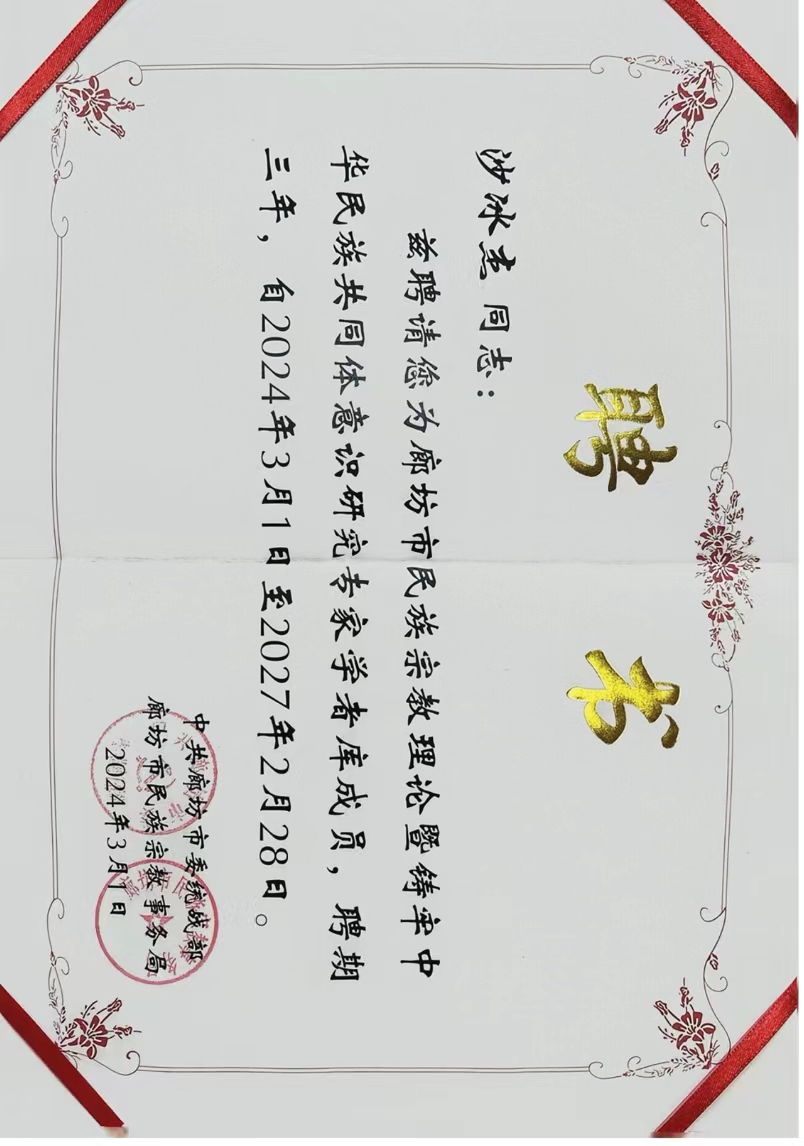 聘书
沙冰杰 同志：
兹聘请您为廊坊市民族宗教理论暨铸牢中
华民族共同体意识研究专家学者库成员，聘期
三年，自2024年3月1日至2027年2月28日。
中共廊坊市委统战部
廊坊市民族宗教事务局
2024年3月1日